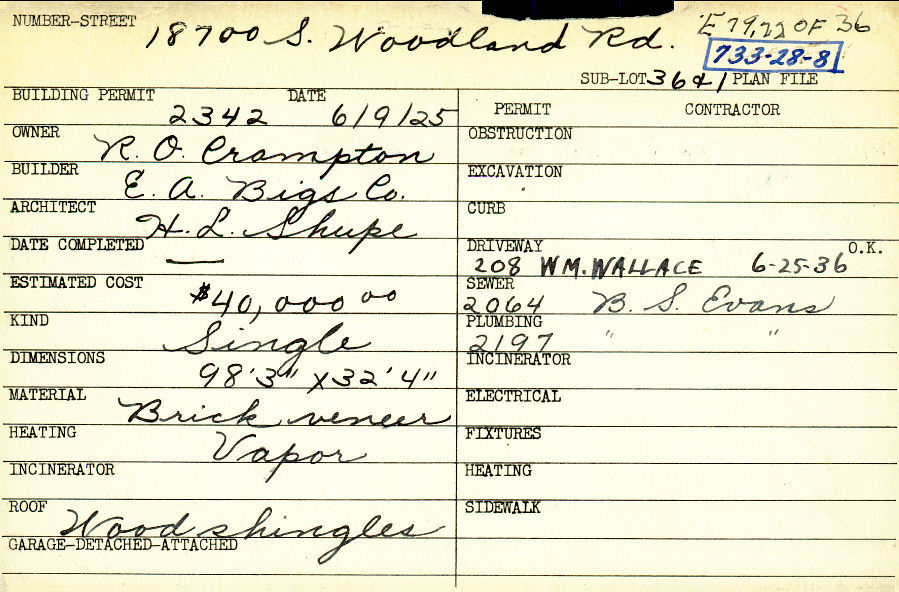 NUMBER-STREET 18700 S. Woodland Rd. E 79,72 OF 36
733-28-8
SUB-LOT 36&1 PLAN FILE
BUILDING PERMIT 2342 DATE 6/9/25
PERMIT CONTRACTOR
OWNER R. O. Crampton
OBSTRUCTION
BUILDER E. A. Bigs Co.
EXCAVATION
ARCHITECT H. L. Shupe
CURB
DATE COMPLETED —
DRIVEWAY 208 WM. WALLACE 6-25-36 O.K.
ESTIMATED COST $40,000 00
SEWER 2064 B. S. Evans
KIND Single
PLUMBING 2197 " "
DIMENSIONS 98'3" X 32'4"
INCINERATOR
MATERIAL Brick veneer
ELECTRICAL
HEATING Vapor
FIXTURES
INCINERATOR
HEATING
ROOF Wood shingles
SIDEWALK
GARAGE-DETACHED-ATTACHED